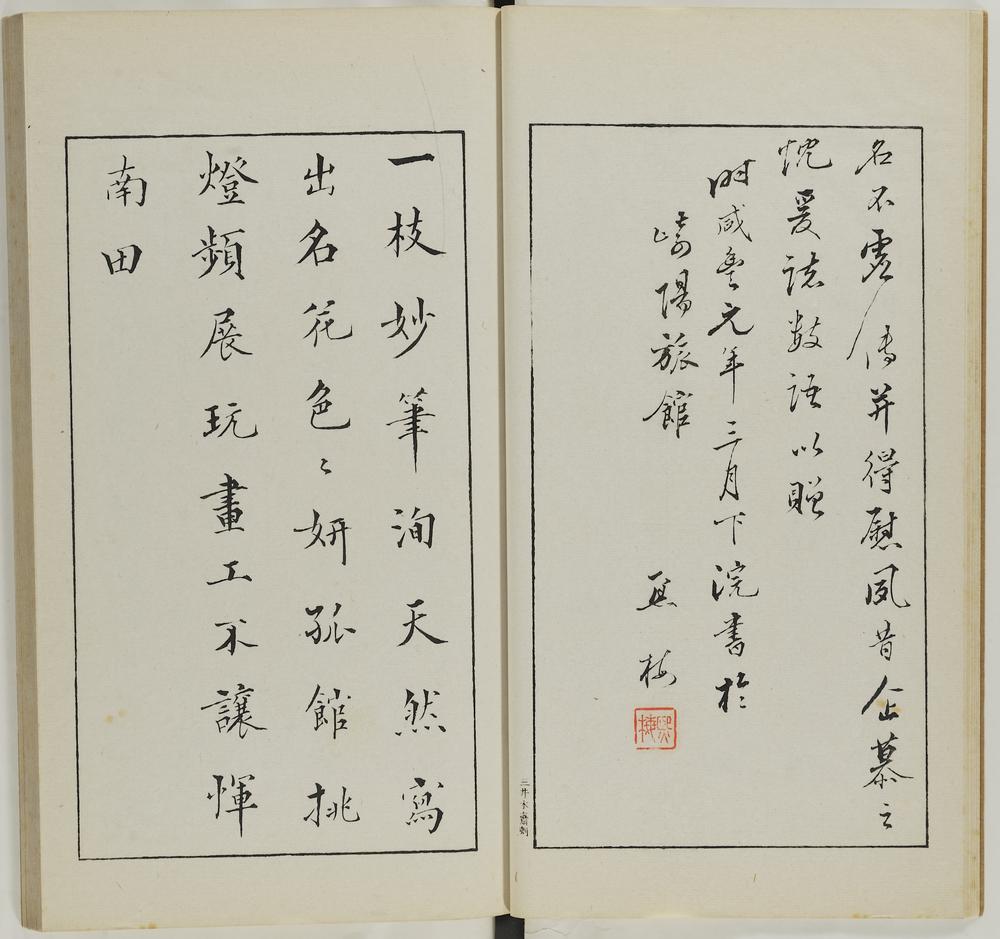 名不虛傳并得慰夙昔企慕之
忱爰誌数語以贈
時咸豐元年三月下浣書於
崎陽旅館
梅
三井木齋刻
一枝妙筆洵天然寫
出名花色〻妍孤館挑
燈頻展玩畫工不讓惲
南田